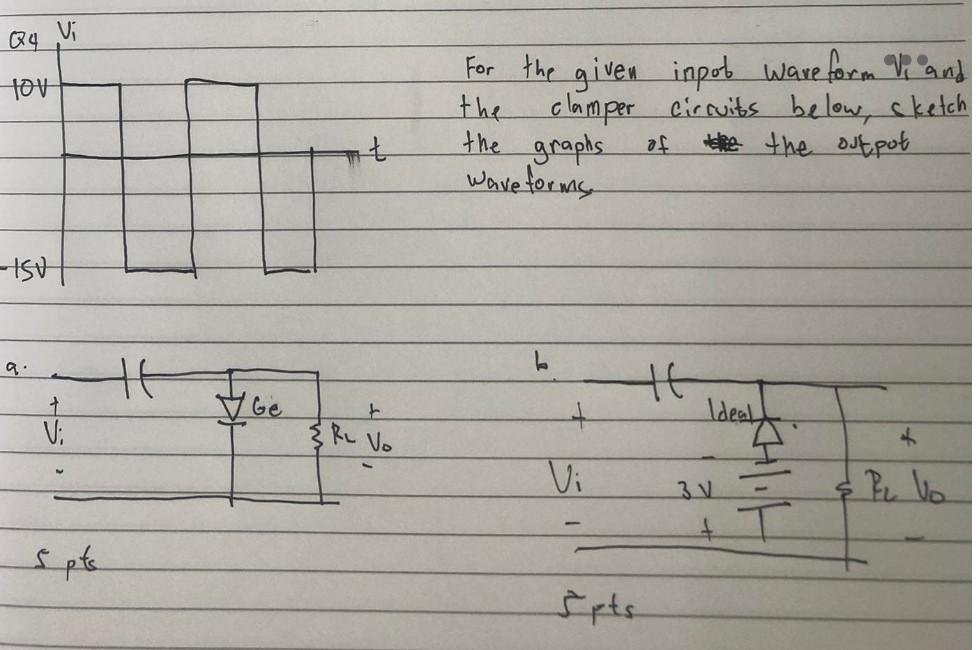 Q4 Vi
10V
t
-15V
For the given inpot waveform Vi and
the clamper circuits below, sketch
the graphs of the outpot
waveforms
a.
+
Vi
-
Ge
RL
+
Vo
-
5 pts
b.
+
Vi
-
Ideal
-
3V
+
RL
+
Vo
-
5 pts